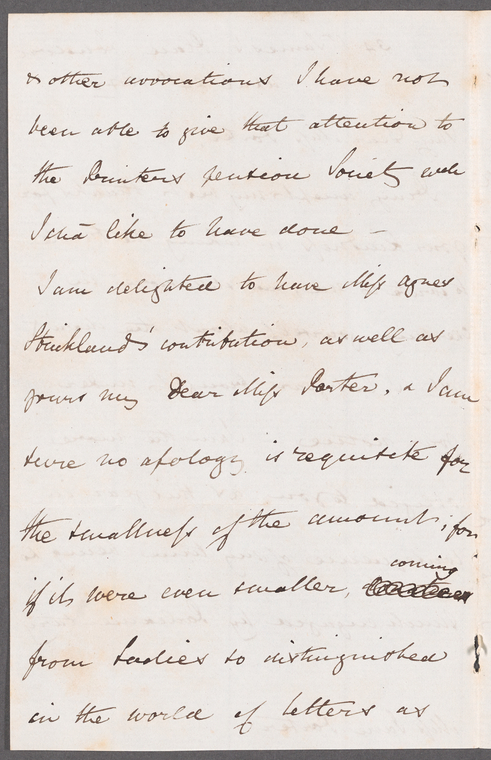 & other avocations I have not
been able to give that attention to
the Printers pension Society wch
I shd like to have done –
I am delighted to have Miss Agnes
Strickland's contribution, as well as
yours my Dear Miss Porter, & I am
sure no apology is requisite for
the smallness of the amount, for
if it were even smaller, coming
from Ladies so distinguished
in the world of letters as